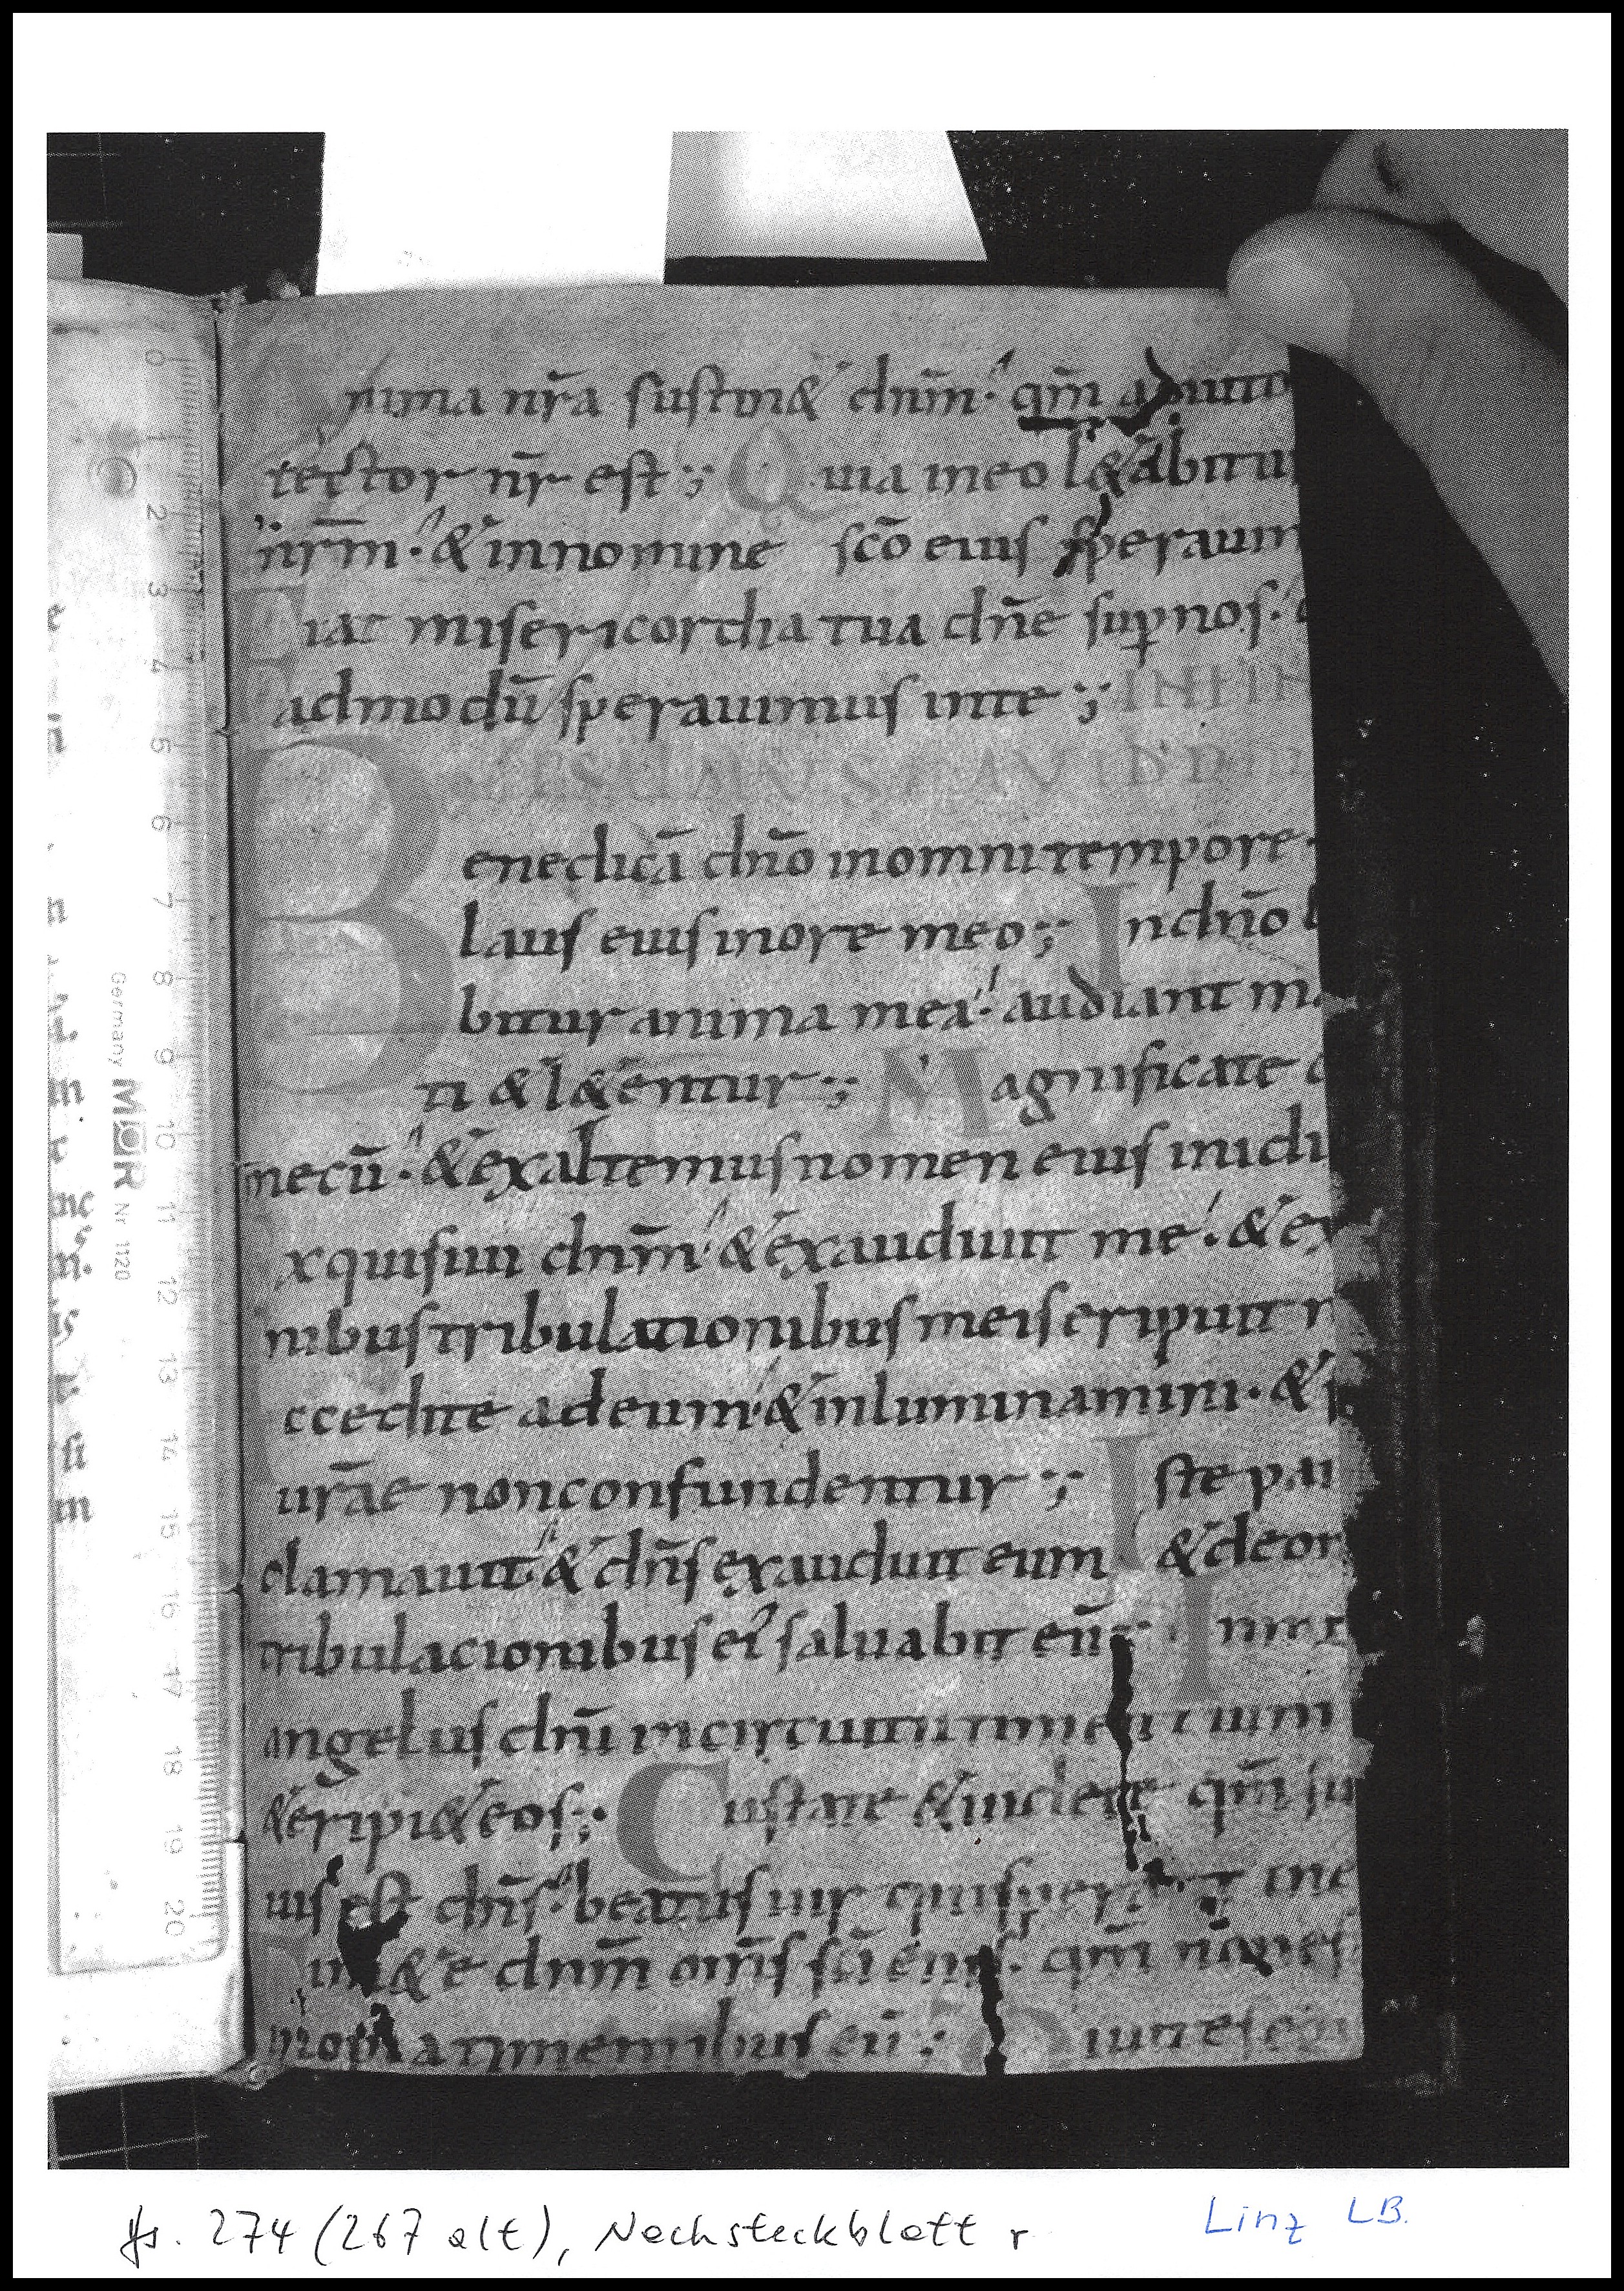 nima nr̄a sustin& dn̄m · qm̄ adiuto
tector nr̄ est ;; Quia in eo l&abitu
nr̄m · & in nomine sc̄o eius speraui
Fiat misericordia tua dn̄e sup nos ·
admodū sperauimus in te ;; IN FIN
Benedicā dn̄o in omni tempore ·
laus eius in ore meo ;; In dn̄o
bitur anima mea · audiant ma
ti & l&entur ;; Magnificate
mecū · & exaltemus nomen eius in idi
xquisiui dn̄m & exaudiuit me · & ex
nibus tribulationibus meis eripuit
ccedite ad eum & inluminamini · &
urāe non confundentur ;; Iste pau
clamauit & dn̄s exaudiuit eum & de om
tribulacionibus ei saluabit eū In mi
angelus dn̄i in circuitu timentium
& eripi& eos ;· Gustate & uidete qm̄ su
uis est dn̄s · beatus uir qui sperat in e
im&e dn̄m om̄s sc̄i eius · qm̄ non es
inopia timentibus eū ; Diuites e
0
1
2
3
4
5
6
7
8
9
10
11
12
13
14
15
16
17
18
19
20
Germany MOR Nr 1120
Hs. 274 (267 alt), Nachsteckblatt r
Linz LB.